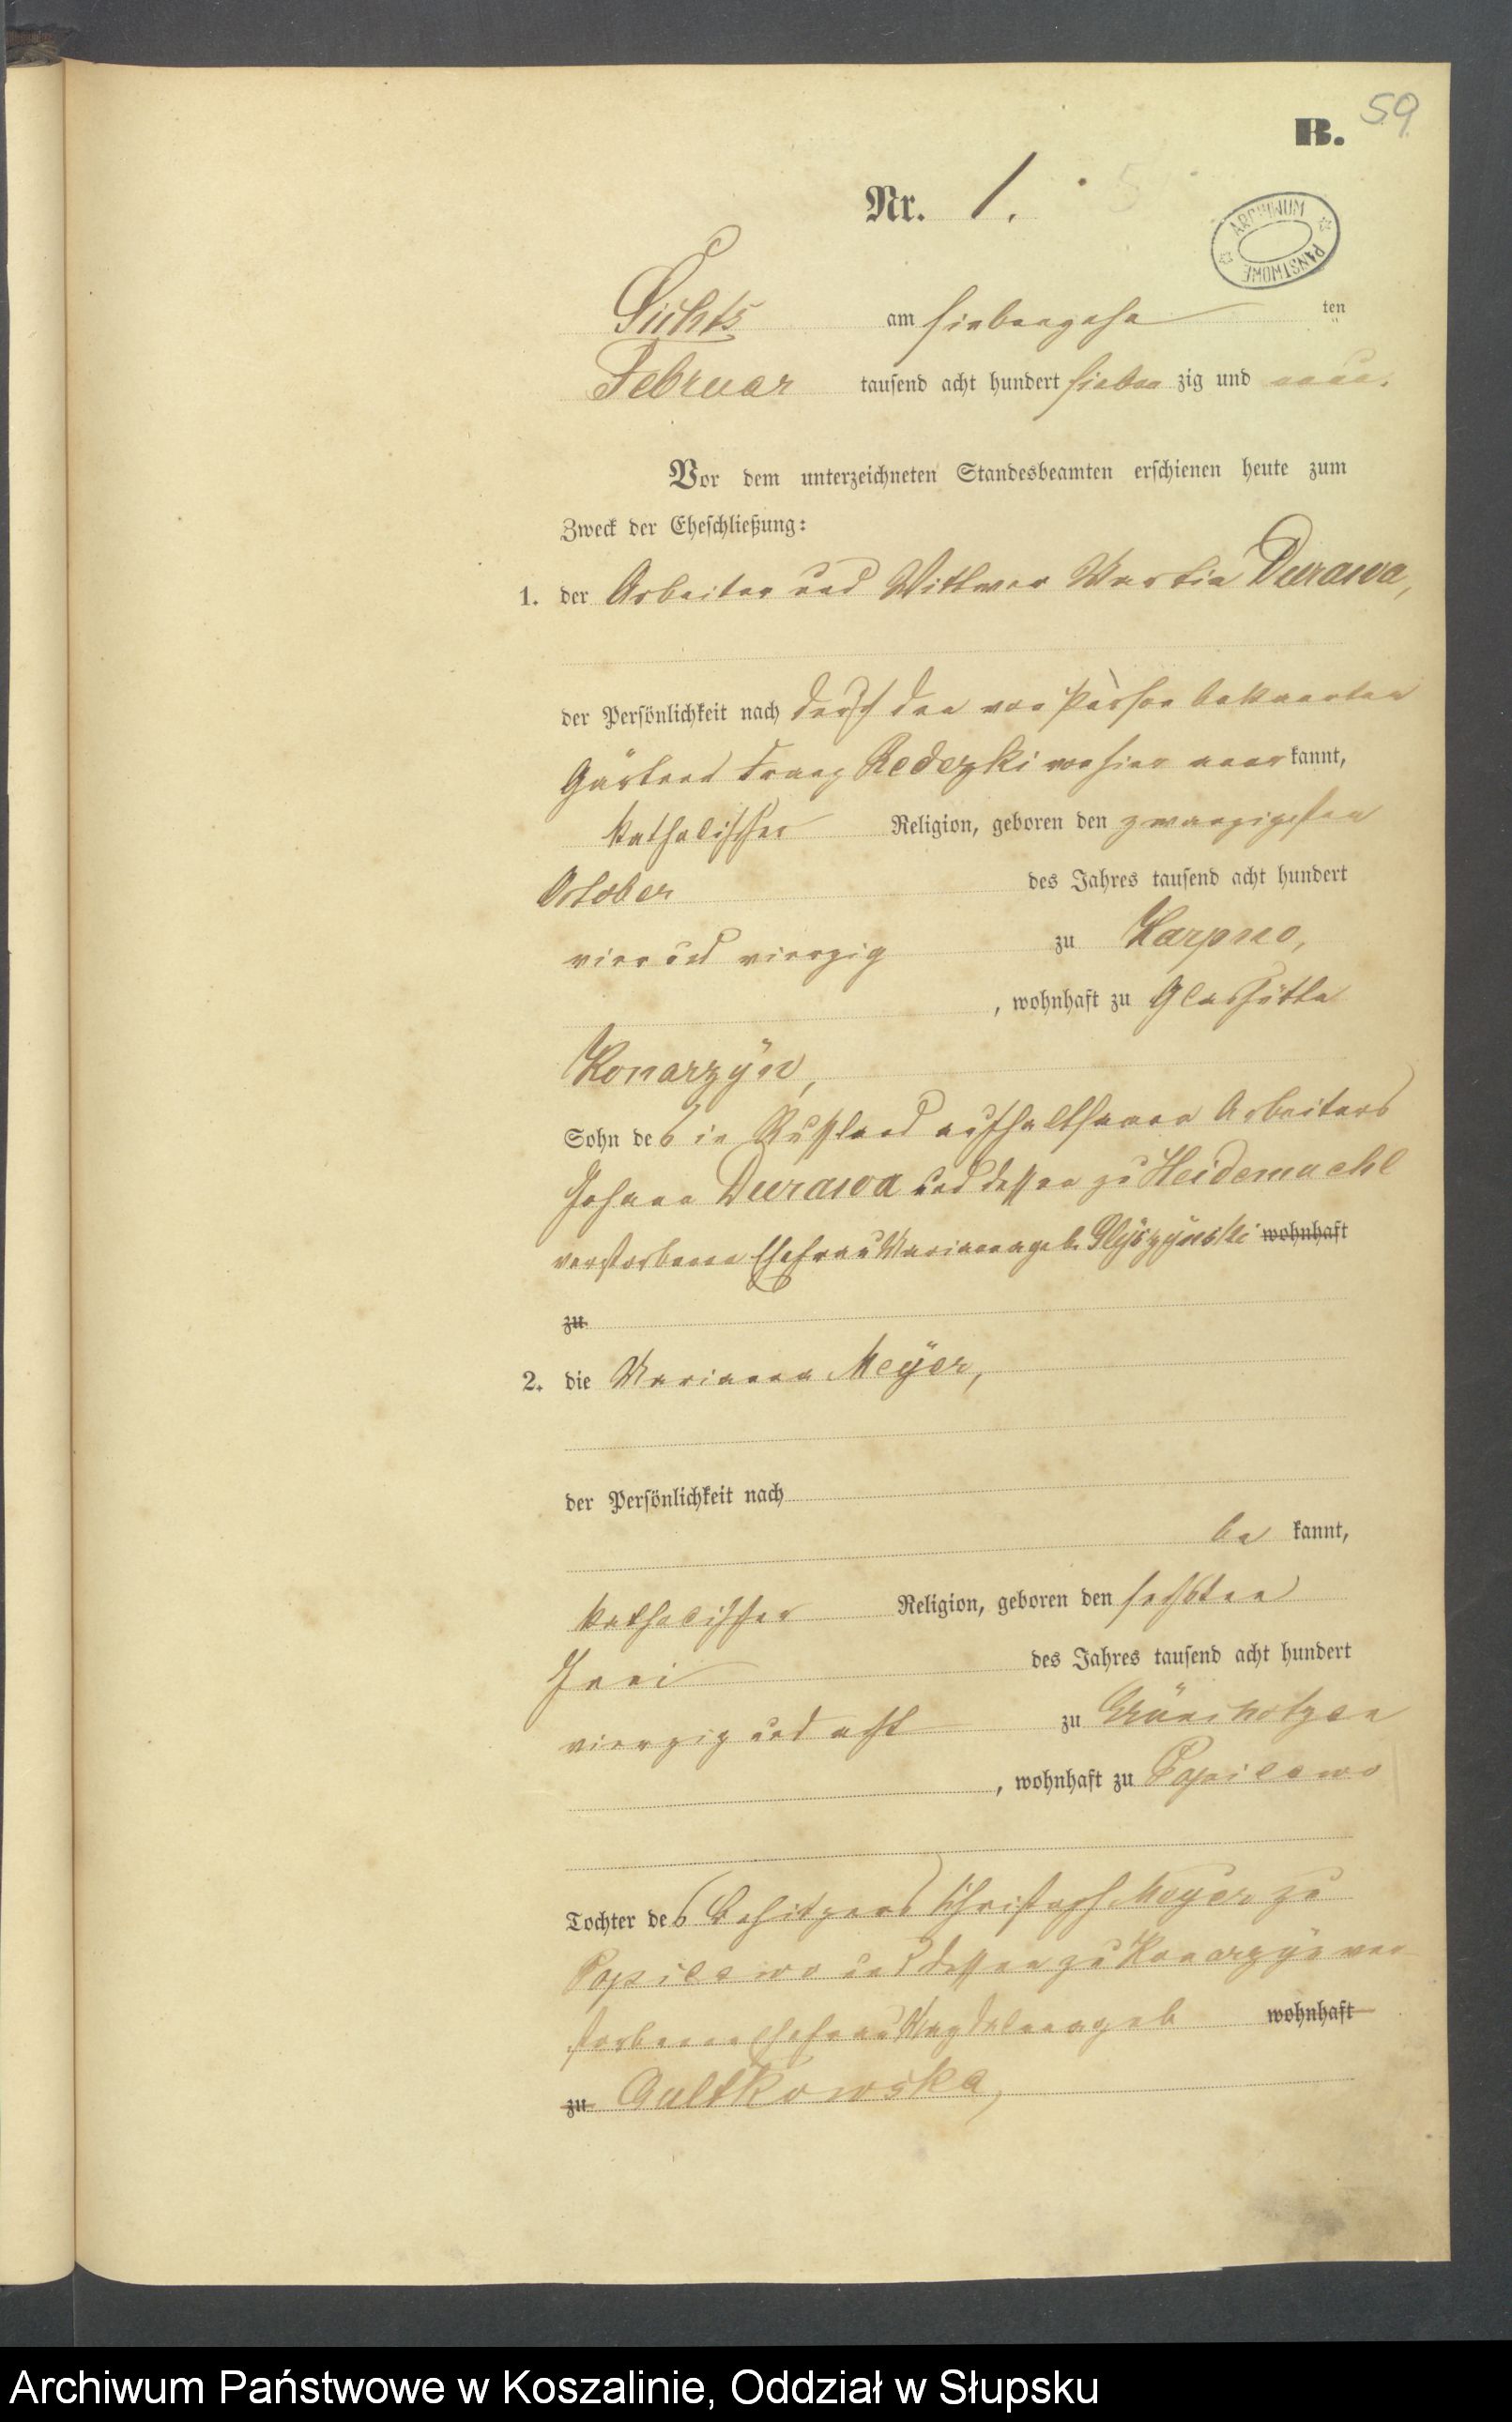 B. 59
Nr. 1.
ARCHIWUM PAŃSTWOWE
am siebenzehn ten
Februar tausend acht hundert sieben zig und neun.
Vor dem unterzeichneten Standesbeamten erschienen heute zum
Zweck der Eheschließung:
1. der Arbeiter und Wittwer Martin Durawa,
der Persönlichkeit nach durch den von Person bekannten
Gärtner Franz Redezki von hier aner kannt,
katholischer Religion, geboren den zwanzigsten
October des Jahres tausend acht hundert
vier und vierzig zu Karpno,
, wohnhaft zu Glashütte
Konarzyn,
Sohn des in Russland aufhaltsamen Arbeiters
Johann Durawa und dessen zu Heidemuehl
verstorbenen Ehefrau Marianna geb. wohnhaft
zu
2. die Marianna Meyer,
der Persönlichkeit nach
be kannt,
katholischer Religion, geboren den sechsten
Juni des Jahres tausend acht hundert
vierzig und acht zu
, wohnhaft zu
Tochter des Besitzers Christoph Meyer zu
und dessen zu Konarzyn ver
storbenen Ehefrau Magdalena geb wohnhaft
zu
Archiwum Państwowe w Koszalinie, Oddział w Słupsku